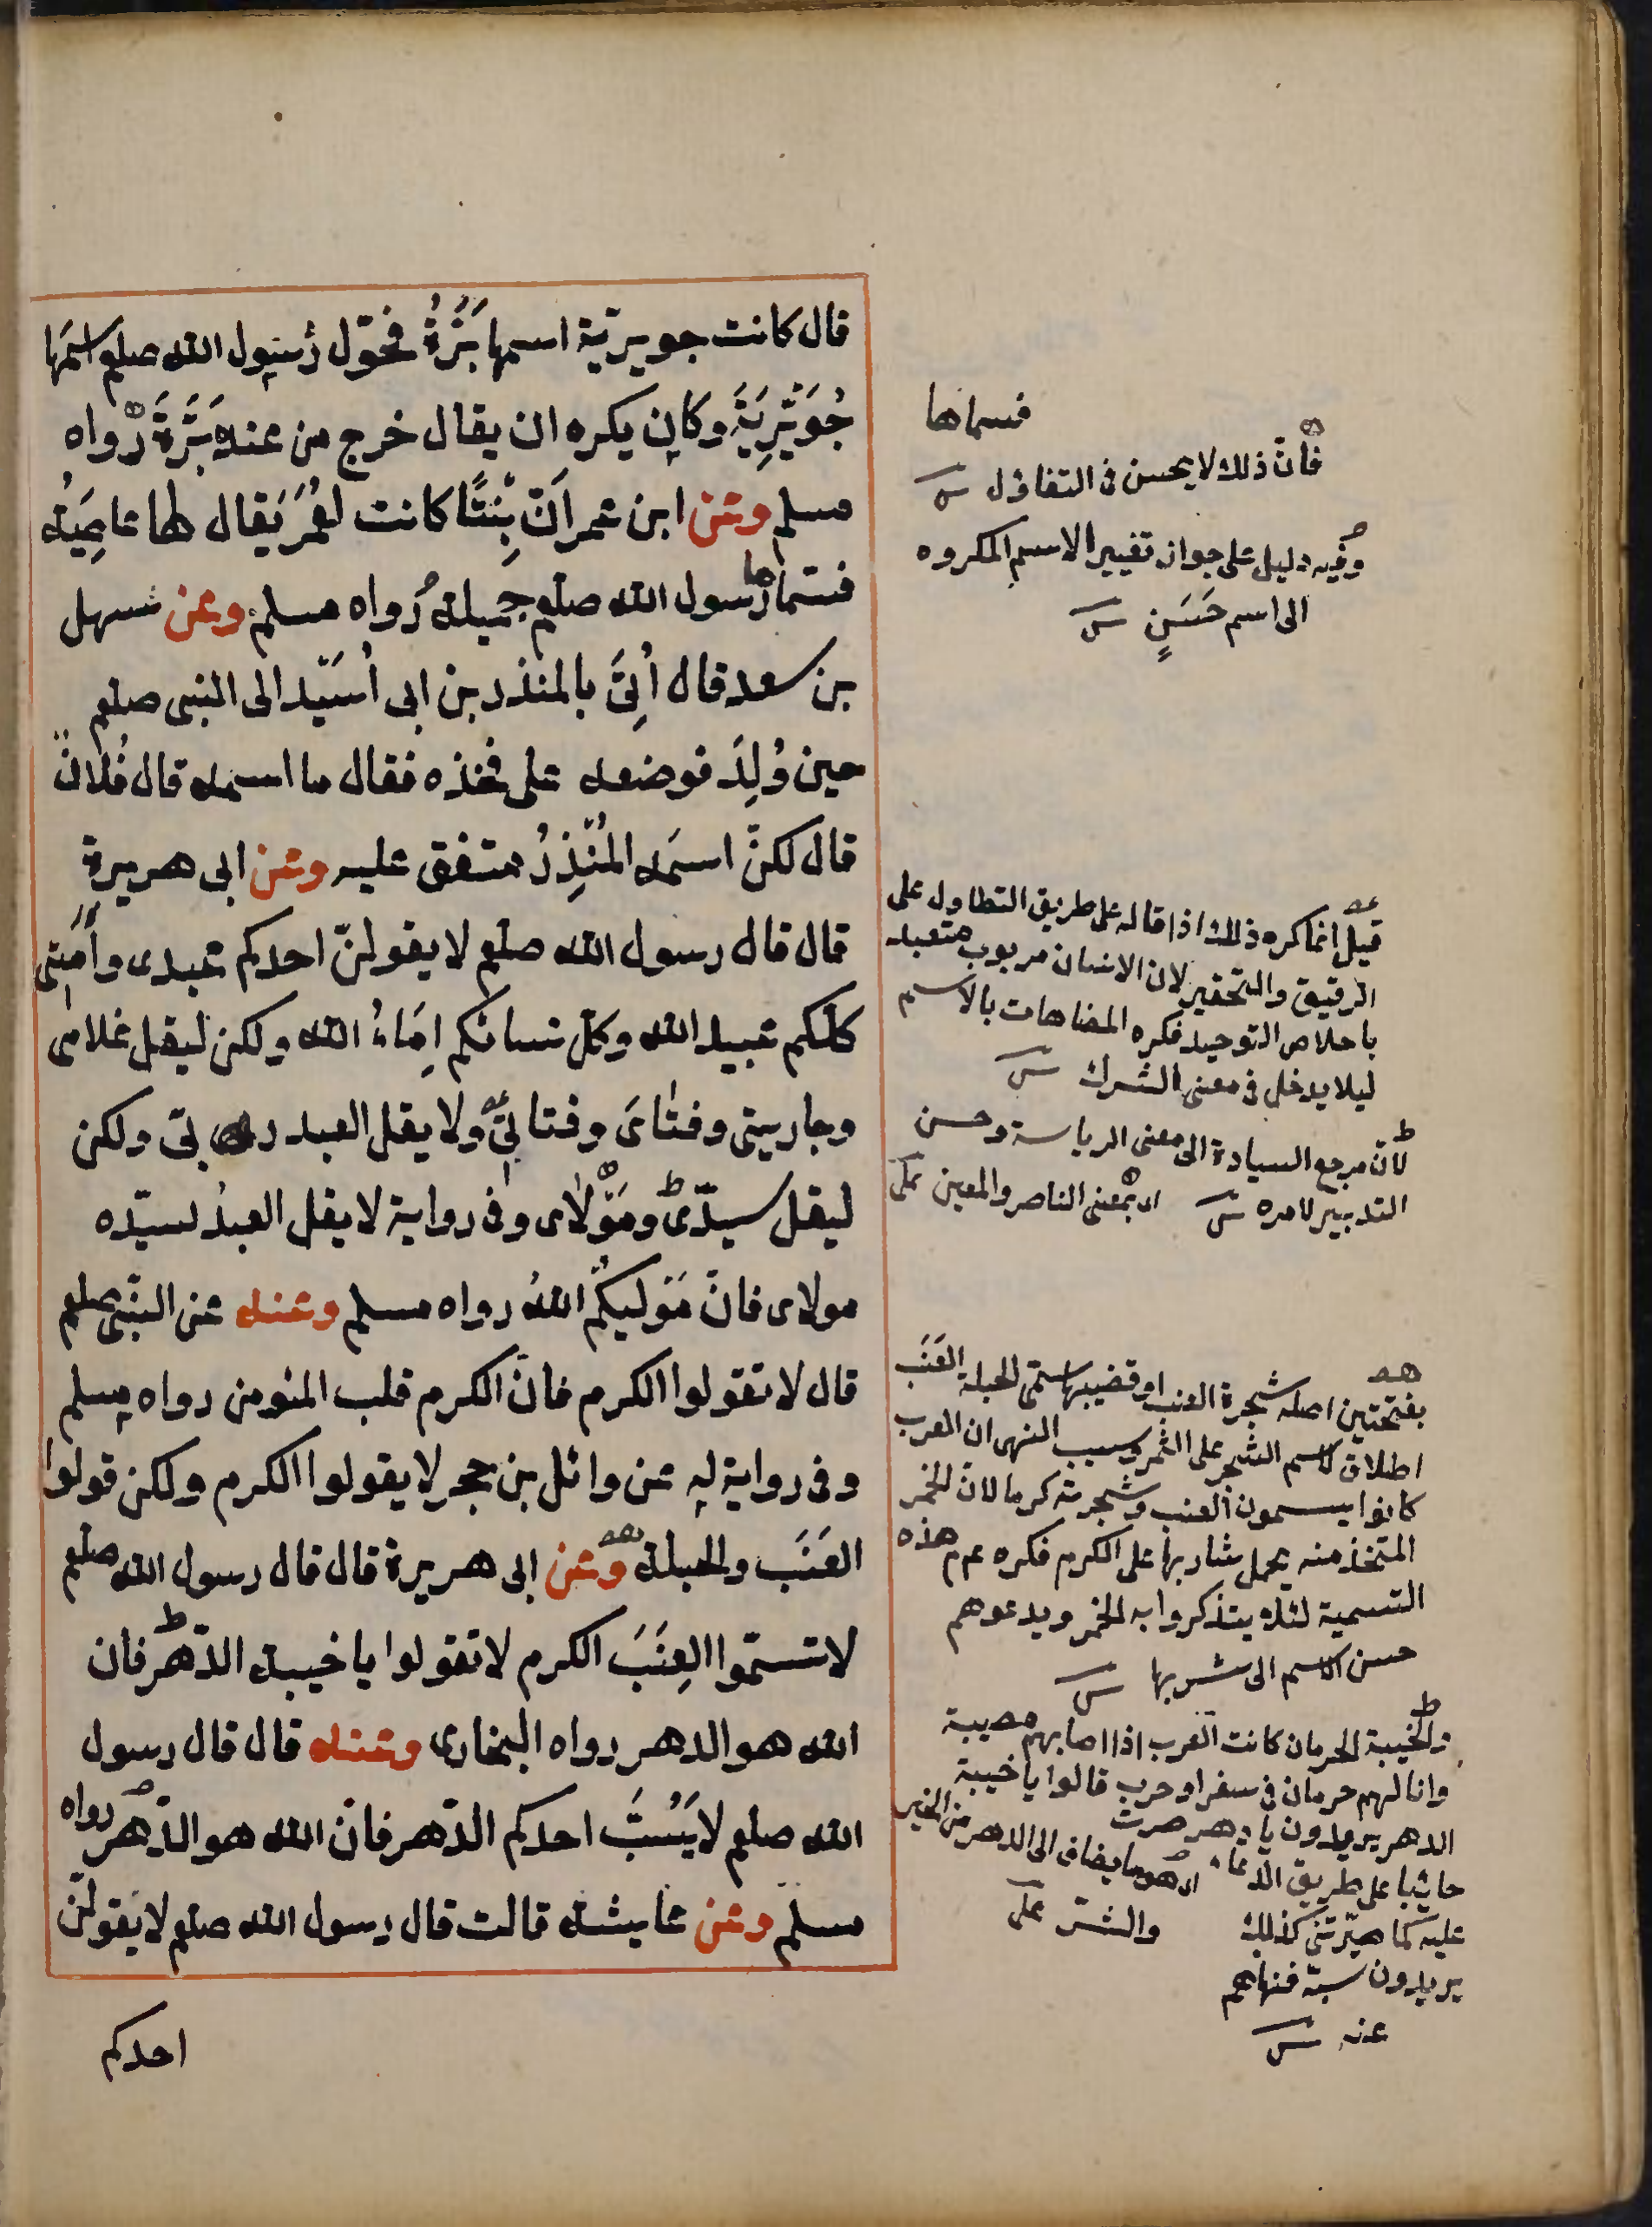 قال كانت جويرية اسمها بَرَّةُ فحوّل رسول الله صلعم اسمَها
جُوَيْرِيَةَ وكان يكره ان يقال خرج من عند بَرَّةَ رواه
مسلم وعن ابن عمر اَنّ بِنْتًا كانت لعُمَرَ يُقال لها عاصِيَةُ
فسمّاها رسول الله صلعم جميلة رواه مسلم وعن سهل
بن سعد قال اُتِىَ بالمنذر بن ابى اُسَيْد الى النبى صلعم
حين وُلِدَ فوضعه على فخذه فقال ما اسمه قال فُلانٌ
قال لكنّ اسمَه المُنْذِرُ متفق عليه وعن ابى هريرة
قال قال رسول الله صلعم لا يقولنّ احدكم عبدى وأَمَتى
كلكم عبيد الله وكل نسائكم اِمَاءُ الله ولكن ليقل غلامى
وجاريتى وفتاىَ وفتاتى ولا يقل العبد ربى ولكن
ليقل سيدّى ومَوْلاى وفى رواية لا يقل العبدُ لسيّده
مولاى فانّ مَوْليكُم اللهُ رواه مسلم وعنه عن النبّى صلعم
قال لا تقولوا الكرم فانّ الكرم قلب المؤمن رواه مسلم
وفى رواية له عن وائل بن حجر لا يقولوا الكرم ولكن قولوا
العَنَب والحبلة وعن ابى هريرة قال قال رسول الله صلعم
لا تسمّوا العِنَبَ الكرم لا تقولوا يا خيبة الدّهر فان
الله هو الدهر رواه البخارى وعنه قال قال رسول
الله صلعم لا يَسُبَّ احدكم الدّهر فانّ الله هو الدّهر رواه
مسلم وعن عايشة قالت قال رسول الله صلعم لا يقولنّ
احدكم
فسماها
فانّ ذلك لا يحسن فى التفاؤل
وفيه دليل على جواز تغيير الاسم المكروه
الى اسم حَسَنٍ
قيل انما كره ذلك اذا قاله على طريق التطاول على
الرقيق والتحقير لان الانسان مربوب متعبد
باخلاص التوحيد فكره المضاهات بالاسم
ليلا يدخل فى معنى الشرك
لانّ مرجع السيادة الى معنى الرياسة وحسن
التدبير لامره
اى بمعنى الناصر والمعين
بفتحتين اصله شجرة العنب او قضيبها سمّى الحبلة العَنَب
اطلاق لاسم الشجر على الثمر وسبب النهى ان العرب
كانوا يسمون العنب وشجرته كرما لانّ الخمر
المتخذ منه يحمل شاربها على الكرم فكره عم هذه
التسمية لئلا يتذكروا به الخمر ويدعوهم
حسن الاسم الى شربها
والخيبة الحرمان كانت العرب اذا اصابهم مصيبة
وانالهم حرمان فى سفر او حرب قالوا يا خيبة
الدهر يريدون يا دهر صرت
خائبا على طريق الدعاء
عليه كما صيّرتنى كذلك
يريدون سبّه فنهاهم
عنه
اى هو ما يضاف الى الدهر من الخير
والشرّ